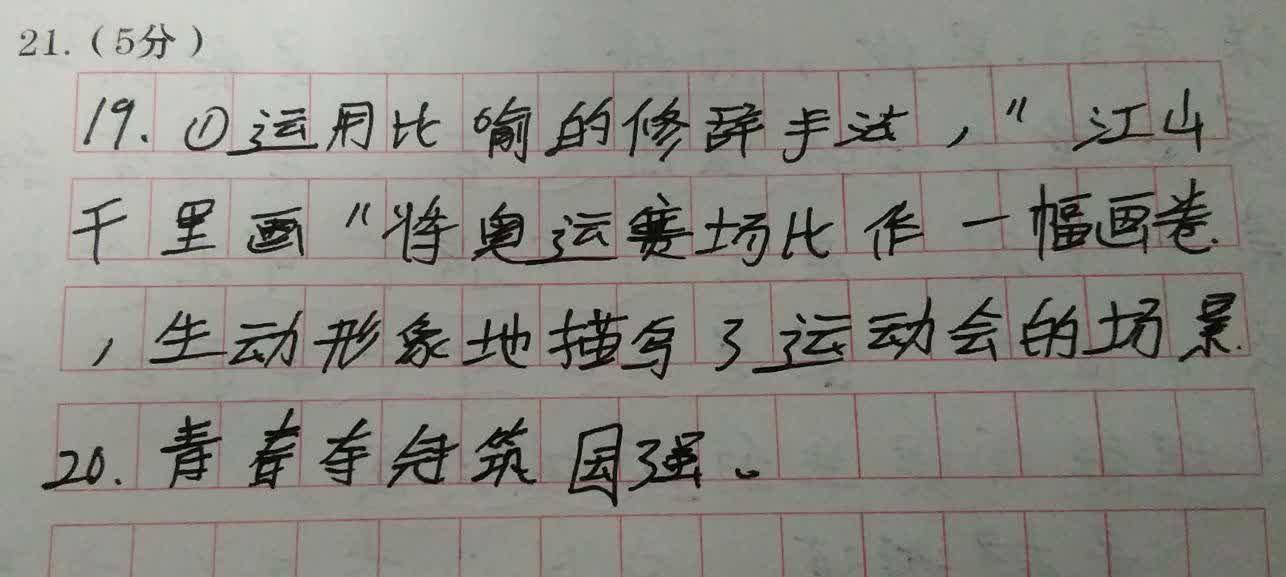 21.(5分)
19.①运用比喻的修辞手法，"江山
千里画"将奥运赛场比作一幅画卷
，生动形象地描写了运动会的场景.
20.青春夺冠筑国强。